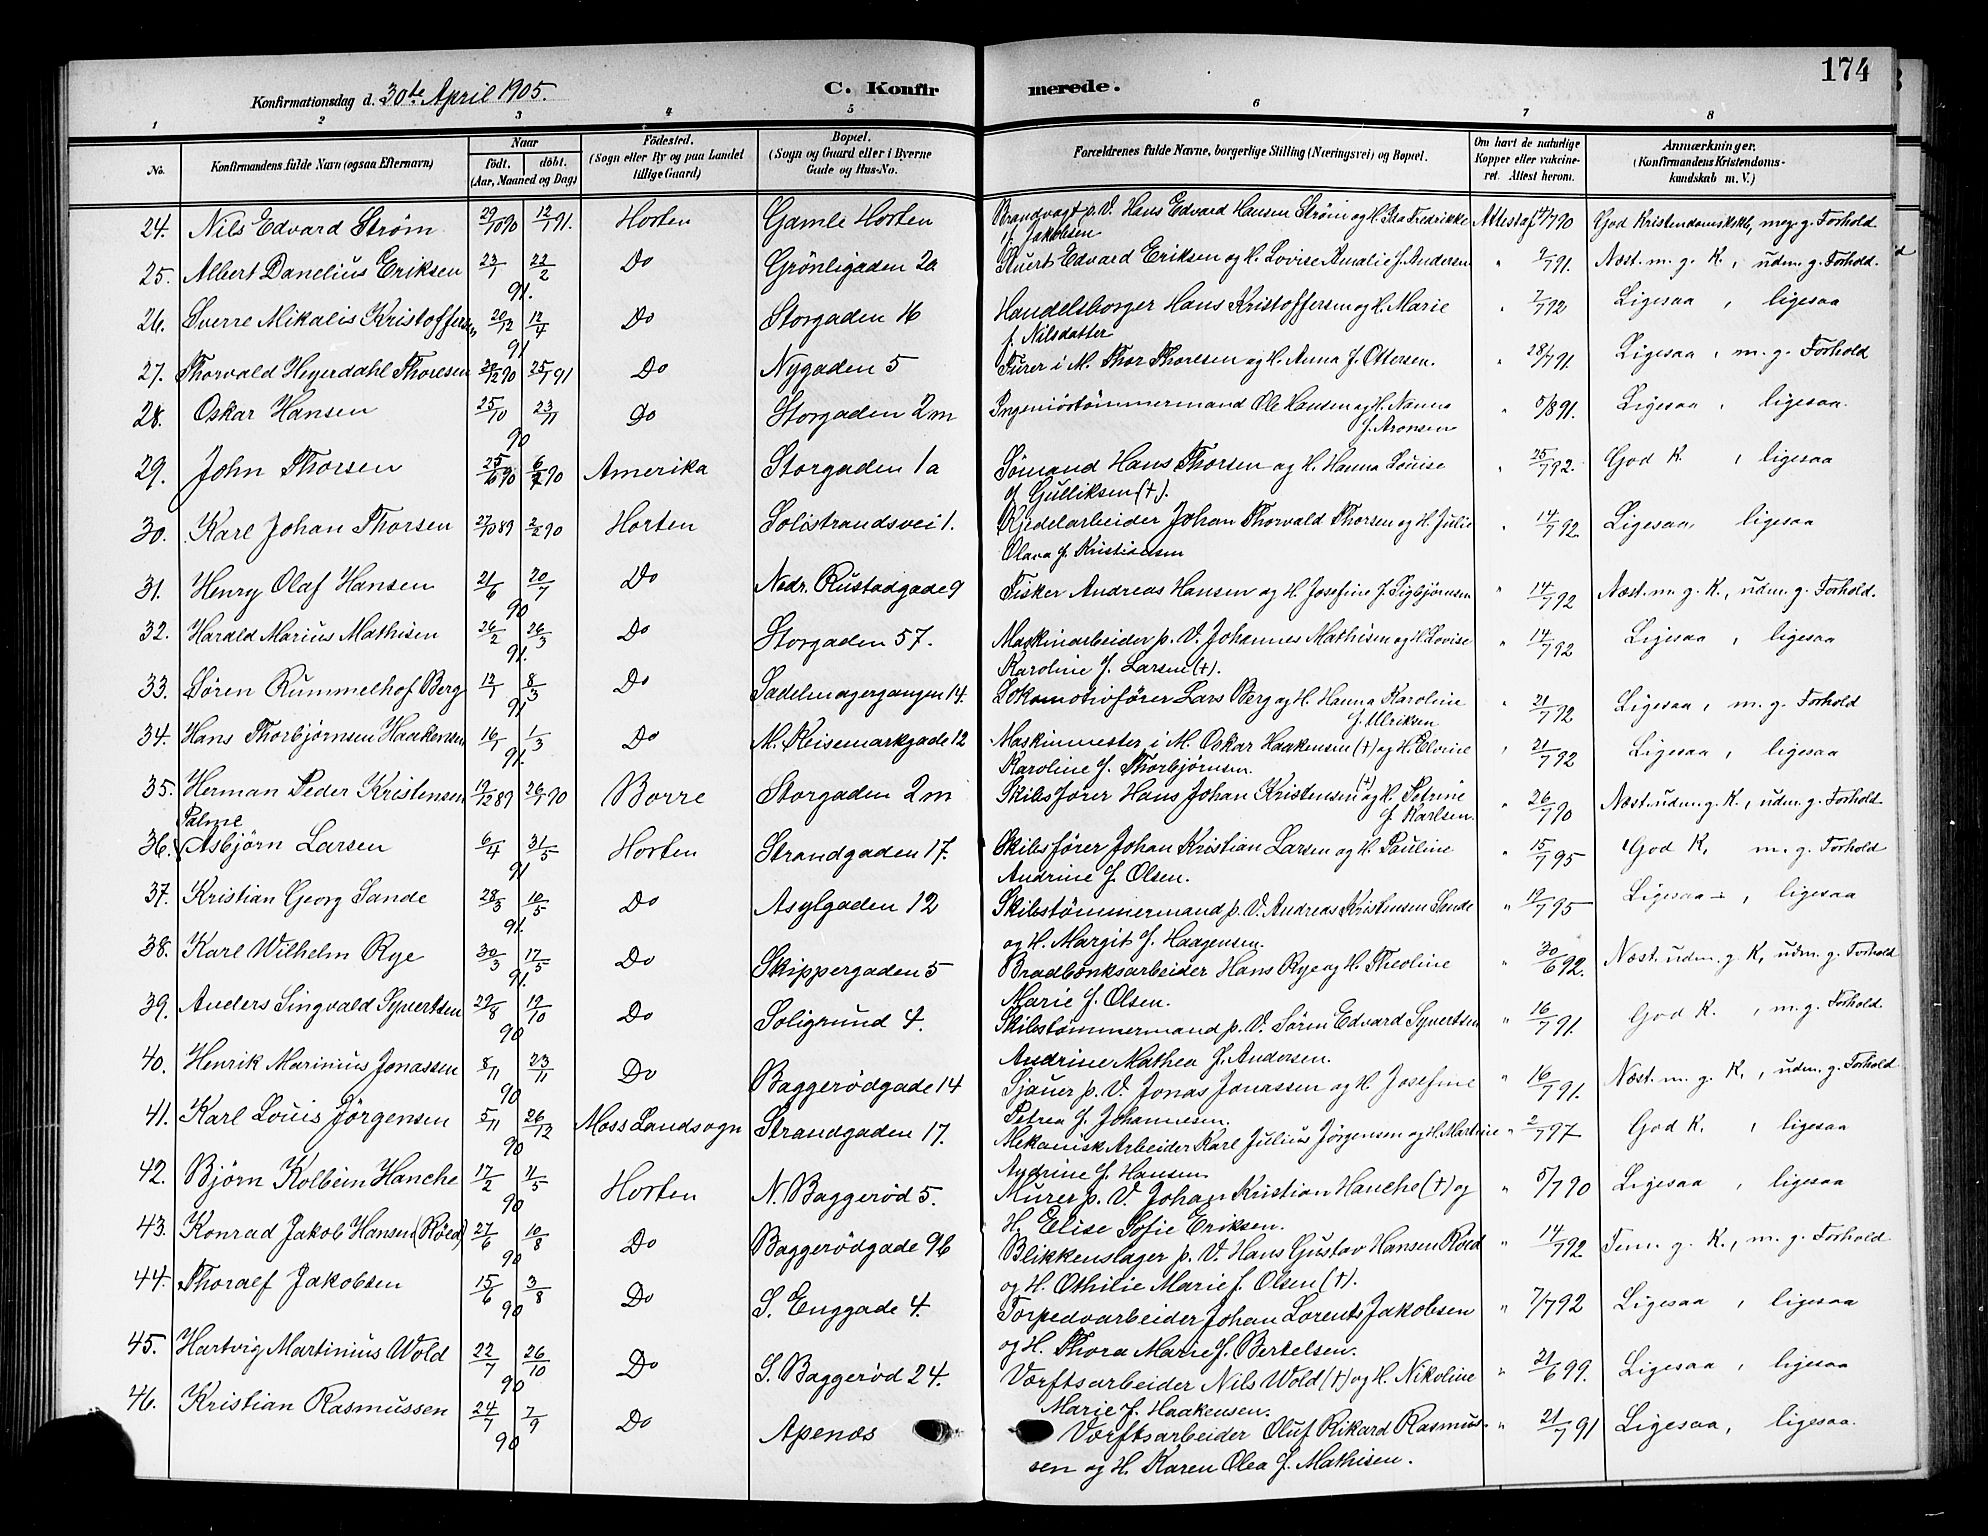 174
Konfirmationsdag d. 30de April 1905. C. Konfirmerede.
1 2 3 4 5 6 7 8
No. Konfirmandens fulde Navn (ogsaa Efternavn) Naar født. døbt. (Aar, Maaned og Dag) Fødested. (Sogn eller By og paa Landet tillige Gaard) Bopæl. (Sogn og Gaard eller i Byerne Gade og Hus-No. Forældrenes fulde Navne, borgerlige Stilling (Næringsvei) og Bopæl. Om havt de naturlige Kopper eller vakcineret. Attest herom. Anmærkninger. (Konfirmandens Kristendomskundskab m. V.)
24. Nils Edvard Strøm 29/10 90 12/7 91. Horten Gamle Horten Brandvagt p. V. Hans Edvard Hansen Strøm og H. Ida Fredrikke f. Jakobsen Attest af God Kristendomskskb, meg. g. Forhold
25. Albert Danelius Eriksen 23/1 22/2 91. Do Grönligaden 20 Stuert Edvard Eriksen og H. Lovise Amalie f. Andersen " 2/7 91. Næst. m. g. K., udm. g. Forhold.
26. Sverre Mikalis Kristoffersen 20/12 12/4 91 Do Storgaden 16 Handelsborger Hans Kristoffersen og H. Marie f. Nilsdatter " 7/7 92 Ligesaa, ligesaa
27. Thorvald Heyerdahl Thoresen 20/12 90 25/7 91 Do Nygaden 5 Furer i M. Thor Thoresen og H. Anna f. Ottersen. " 28/7 91. Ligesaa, m. g. Forhold
28. Oskar Hansen 25/10 23/11 90 Do Storgaden 2m Ingeniörtömmermand Ole Hansen og H. Nanna f. Aronsen " 5/8 91. Ligesaa, ligesaa.
29. John Thorsen 25/6 90 90 Amerika Storgaden 1a Sømand Hans Thorsen og H. Hanna Louise f. Gulliksen (+). " 25/7 92. God K., ligesaa
30. Karl Johan Thorsen 27/10 89 2/2 90 Horten Solistrandsvei 1. Kjedelarbeider Johan Thorvald Thorsen og H. Julie Olava f. Kristiansen " 14/7 92. Ligesaa, ligesaa
31. Henry Olaf Hansen 21/6 20/7 90 Do Nedr. Rustadgade 9 Fisker Andreas Hansen og H. Josefine f. Sigbjörnsen " 14/7 92 Næst. m. g. K., udm. g. Forhold.
32. Harald Marius Mathisen 26/2 26/3 91. Do Storgaden 57. Maskinarbeider p. V. Johannes Mathisen og H. Lovise Karoline f. Larsen (+). " 14/7 92 Ligesaa, ligesaa
33. Sören Rummelhof Berg 12/1 8/3 91 Do Sadelmagergangen 14. Lokomotivförer Lars Berg og H. Hanna Karoline f. Ulriksen " 21/7 92 Ligesaa, m. g. Forhold
34. Hans Thorbjørnsen Haakensen 16/1 1/3 91. Do M. Reisemarkgade 12 Maskinmester i M. Oskar Haakensen (+) og H. Elvine Karoline f. Thorbjörnsen. " 21/7 92 Ligesaa, ligesaa
35. Herman Peder Kristensen 19/12 89 26/1 90 Borre Storgaden 2m Skibsförer Hans Johan Kristensen (+) og H. Petrine f. Karlsen. " 26/7 90 Næst. udm. g. K., udm. g. Forhold.
36. Palmé Asbjörn Larsen 6/4 31/5 91 Horten Strandgaden 17. Skibsfører Johan Kristian Larsen og H. Pauline Andrine f. Olsen. " 15/7 95 God K, m. g. Forhold
37. Kristian Georg Sande 28/3 10/5 91. Do Asylgaden 12 Skibstömmermand p. V. Andreas Kristensen Sande og H. Margit f. Haagensen. " 19/7 95 Ligesaa, ligesaa
38. Karl Wilhelm Rye 30/3 17/5 91. Do Skippergaden 5 Bradbönksarbeider Hans Rye og H. Theoline Marie f. Olsen. " 30/6 92. Næst. udm. g. K, udm. g. Forhold
39. Anders Singvald Syvertsen 29/8 19/10 90 Do Soligrund 4. Skibstömmermand p. V. Sören Edvard Syvertsen Andrine Mathea f. Andersen. " 16/7 91. God K., m. g. Forhold.
40. Henrik Marinius Jonassen 8/11 23/11 90 Do Baggerödgade 14 Sjauer p. V. Jonas Jonassen og H. Josefine Petrea f. Johannesen. " 16/7 91. Næst. m. g. K., udm. g. Forhold
41. Karl Louis Jörgensen 5/11 26/12 90 Moss Landsogn Strandgaden 17. Mekanisk Arbeider Karl Julius Jörgensen og H. Martine Andrine f. Hansen " 2/7 97 God K., ligesaa
42. Björn Kolbein Hanche 17/2 11/5 90 Horten N. Baggeröd 5. Murer p. V. Johan Kristian Hanche (+) og H. Elise Sofie Eriksen. " 5/7 90 Ligesaa, ligesaa
43. Konrad Jakob Hansen (Röed) 27/6 10/8 90 Do Baggerödgade 96 Blikkenslager p. V. Hans Gustav Hansen Röed og H. Othilie Marie f. Olsen (+). " 14/7 92 Tem. g. K., m. g. Forhold
44. Thoralf Jakobsen 15/6 3/8 90 Do S. Enggade 4. Torpedoarbeider Johan Lorents Jakobsen og H. Thora Marie f. Bertelsen. " 7/7 92 Ligesaa, ligesaa
45. Hartvig Martinius Wold 22/7 26/10 90 Do S. Baggeröd 24. Værftsarbeider Nils Wold (+) og H. Nikoline Marie f. Haakensen. " 21/6 99. Ligesaa, ligesaa
46. Kristian Rasmussen 24/7 7/9 90 Do Apenæs Værftsarbeider Oluf Rikard Rasmussen og H. Karen Olea f. Mathisen. " 21/7 91 Ligesaa, ligesaa.